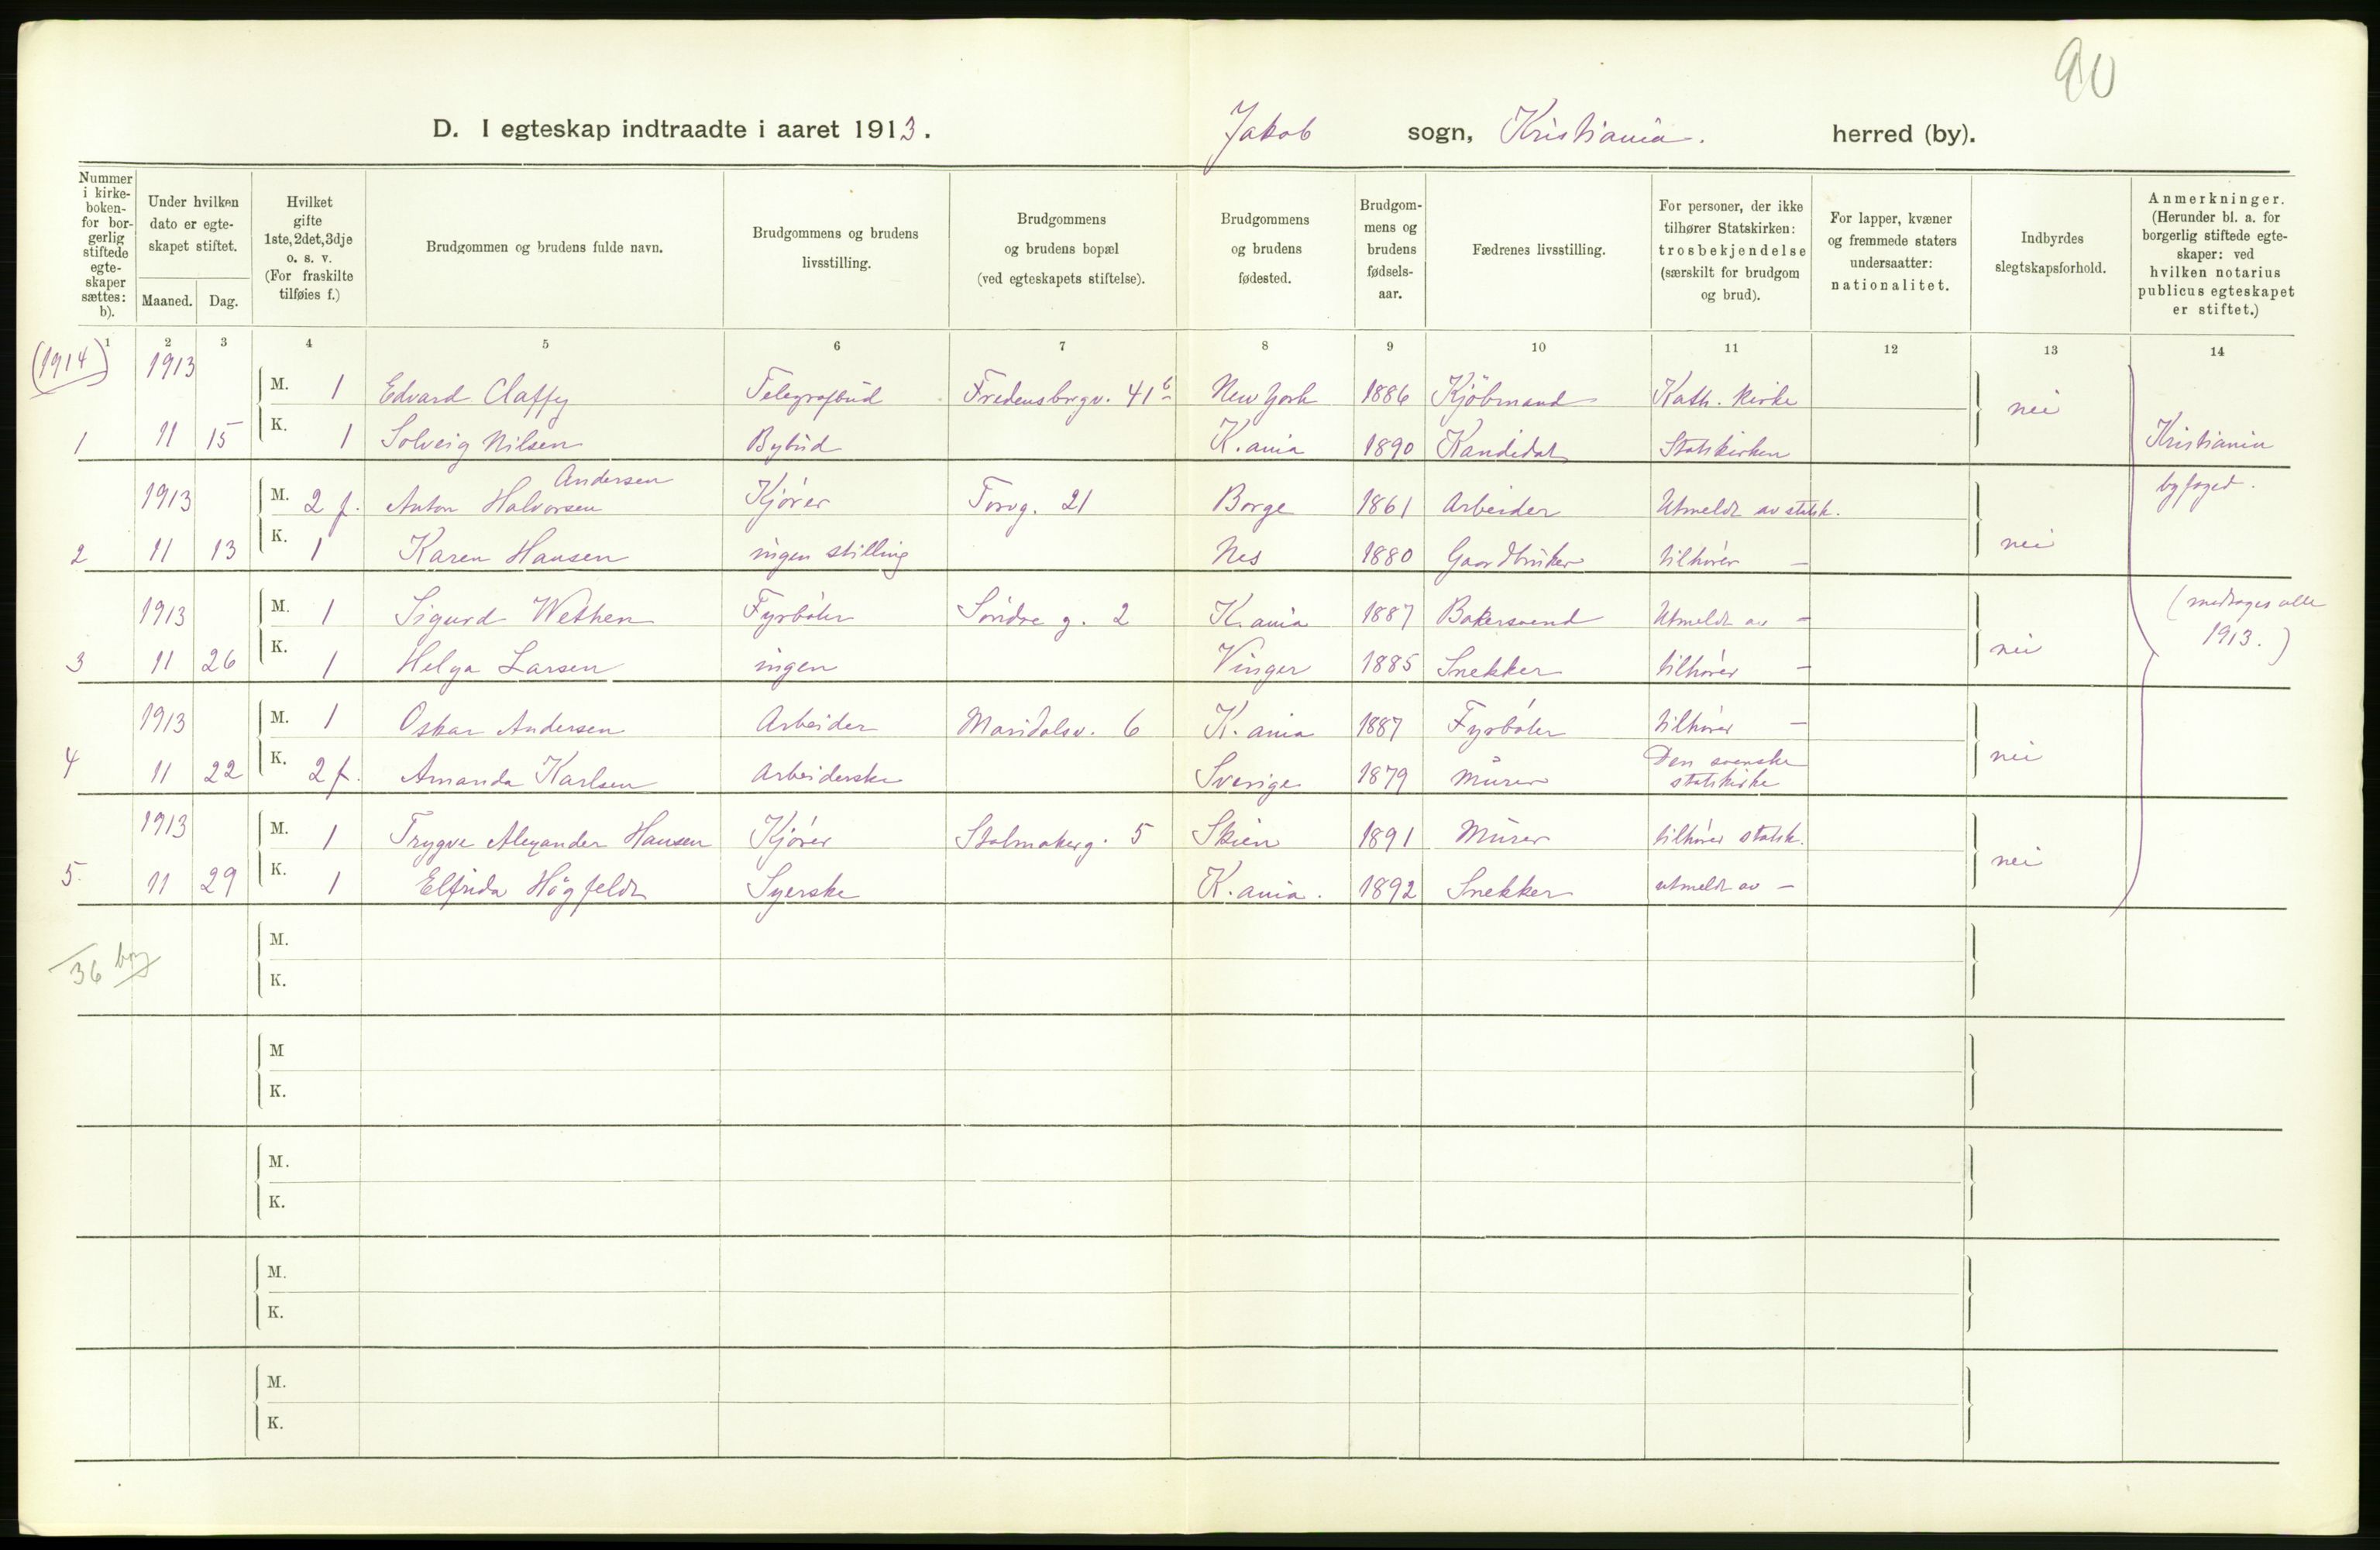 90
D. I egteskap indtraadte i aaret 1913. Jakob sogn, Kristiania. herred (by).
Nummer i kirke-boken- for bor-gerlig stiftede egte-skaper sættes: b).
Under hvilken dato er egte-skapet stiftet.
Maaned. Dag.
Hvilket gifte 1ste, 2det, 3dje o. s. v. (For fraskilte tilføies f.)
Brudgommen og brudens fulde navn.
Brudgommens og brudens livsstilling.
Brudgommens og brudens bopæl (ved egteskapets stiftelse).
Brudgommens og brudens fødested.
Brudgom-mens og brudens fødsels-aar.
Fædrenes livsstilling.
For personer, der ikke tilhører Statskirken: trosbekjendelse (særskilt for brudgom og brud).
For lapper, kvæner og fremmede staters undersaatter: nationalitet.
Indbyrdes slegtskapsforhold.
Anmerkninger. (Herunder bl. a. for borgerlig stiftede egte-skaper: ved hvilken notarius publicus egteskapet er stiftet.)
1 2 3 4 5 6 7 8 9 10 11 12 13 14
(1914) 1913 M. 1 Edvard Claffy Telegrafbud Fredensborgv. 41 b New York 1886 Kjöbmand Kath. kirke nei
1 11 15 K. 1 Solveig Nilsen Bybud K.ania 1890 Kandidat Statskirken Kristiania
Andersen
1913 M. 2 f. Anton Halvorsen Kjörer Torvg. 21 Borge 1861 Arbeider Utmeldt av statsk. byfoged.
2 11 13 K. 1 Karen Hansen ingen stilling Nes 1880 Gaardbruker tilhörer — nei
1913 M. 1 Sigurd Wethen Fyrböter Söndre g. 2 K.ania 1887 Bakersvend Utmeldt av — (medtages alle
3 11 26 K. 1 Helga Larsen ingen Vinger 1885 Snekker tilhörer — nei 1913.)
1913 M. 1 Oskar Andersen Arbeider Maridalsv. 6 K.ania 1887 Fyrböter tilhörer —
4 11 22 K. 2 f. Amanda Karlsen Arbeiderske Sverige 1879 Murer Den svenske statskirke nei
1913 M. 1 Trygve Alexander Hansen Kjörer Stolmakerg. 5 Skien 1891 Murer tilhörer statsk.
5. 11 29 K. 1 Elfrida Högfeldt Syerske K.ania. 1892 Snekker utmeldt av — nei
M.
36 borg
K.
M
K.
M.
K.
M.
K.
M.
K.